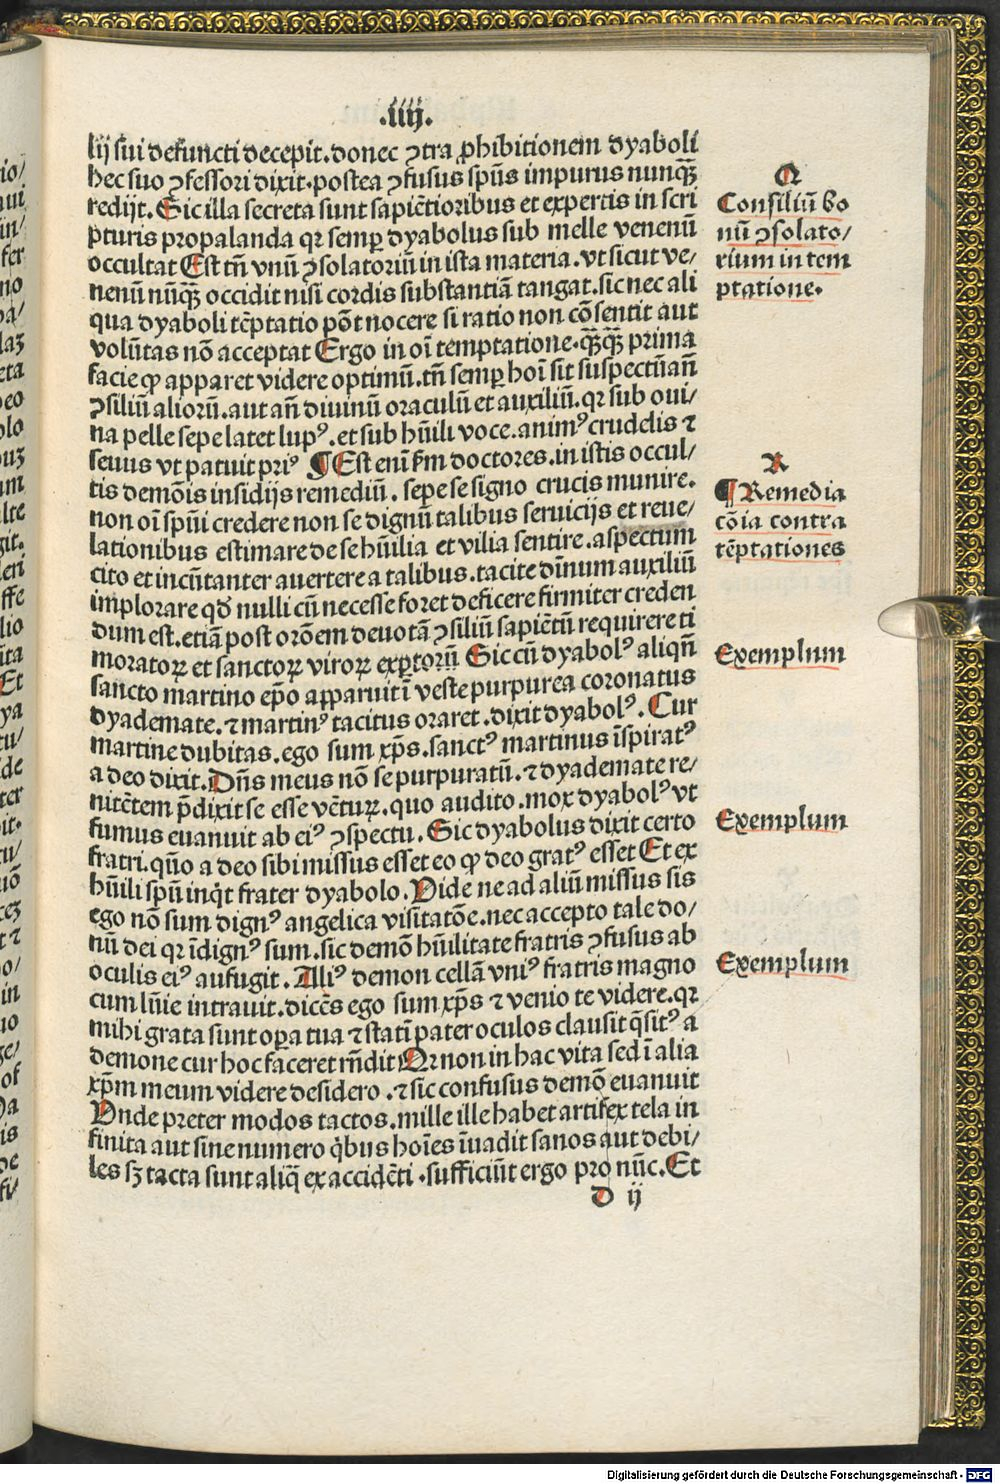 .iiij.
lij sui defuncti decepit. donec ꝯtra ꝓhibitionem dyaboli
hec suo ꝯfessori dixit. postea ꝯfusus spūs impurus nunq̄ꝫ
redijt. Sic illa secreta sunt sapiētioribus et expertis in scri
pturis propalanda qꝛ semꝑ dyabolus sub melle venenū
occultat Est tn̄ vnū ꝯsolatoriū in ista materia. vt sicut ve/
nenū nūq̄ꝫ occidit nisi cordis substantiā tangat. sic nec ali
qua dyaboli tēptatio pōt nocere si ratio non cōsentit aut
volūtas nō acceptat Ergo in oī temptatione. q̄ꝫq̄ꝫ prima
facie ꝙ apparet videre optimū. tn̄ semꝑ hoī sit suspectū an̄
ꝯsiliū aliorū. aut an̄ diuinū oraculū et auxiliū. qꝛ sub oui/
na pelle sepe latet lupꝰ. et sub hūili voce. animꝰ crudelis ⁊
seuus vt patuit priꝰ ¶ Est enī ẜm doctores. in istis occul/
tis demōis insidijs remediū. sepe se signo crucis munire.
non oī spūi credere non se dignū talibus seruicijs et reue/
lationibus estimare de se hūilia et vilia sentire. aspectum
cito et incūtanter auertere a talibus. tacite dīnum auxiliū
implorare qđ nulli cū necesse foret deficere firmiter creden
dum est. etiā post orōem deuotā ꝯsiliū sapiētū requirere ti
moratoꝝ et sanctoꝝ viroꝝ exꝑtorū Sic cū dyabolꝰ aliqn̄
sancto martino ep̄o apparuit ī veste purpurea coronatus
dyademate. ⁊ martinꝰ tacitus oraret. dixit dyabolꝰ. Cur
martine dubitas. ego sum xp̄s. sanctꝰ martinus īspiratꝰ
a deo dixit. Dn̄s meus nō se purpuratū. ⁊ dyademate re/
nitētem p̄dixit se esse vētuꝝ. quo audito. mox dyabolꝰ vt
fumus euanuit ab eiꝰ ꝯspectu. Sic dyabolus dixit certo
fratri. qūo a deo sibi missus esset eo ꝙ deo gratꝰ esset Et ex
hūili spū inqͥt frater dyabolo. Vide ne ad aliū missus sis
ego nō sum dignꝰ angelica visitatōe. nec accepto tale do/
nū dei qꝛ īdignꝰ sum. sic demō hūilitate fratris ꝯfusus ab
oculis eiꝰ aufugit. Aliꝰ demon cellā vniꝰ fratris magno
cum lūie intrauit. dicēs ego sum xp̄s ⁊ venio te videre. qꝛ
mihi grata sunt oꝑa tua ⁊ statī pater oculos clausit q̄sitꝰ a
demone cur hoc faceret rn̄dit Qꝛ non in hac vita sed ī alia
xp̄m meum videre desidero. ⁊ sic confusus demō euanuit
Vnde preter modos tactos. mille ille habet artifex tela in
finita aut sine numero qͥbus hoīes īuadit sanos aut debi/
les sꝫ tacta sunt aliq̄ ex accidēti. sufficiūt ergo pro nūc. Et
d ij
Q
Consiliū bo
nū ꝯsolato/
rium in tem
ptatione.
R
¶ Remedia
cōia contra
tēptationes
Exemplum
Exemplum
Exemplum
Digitalisierung gefördert durch die Deutsche Forschungsgemeinschaft - DFG